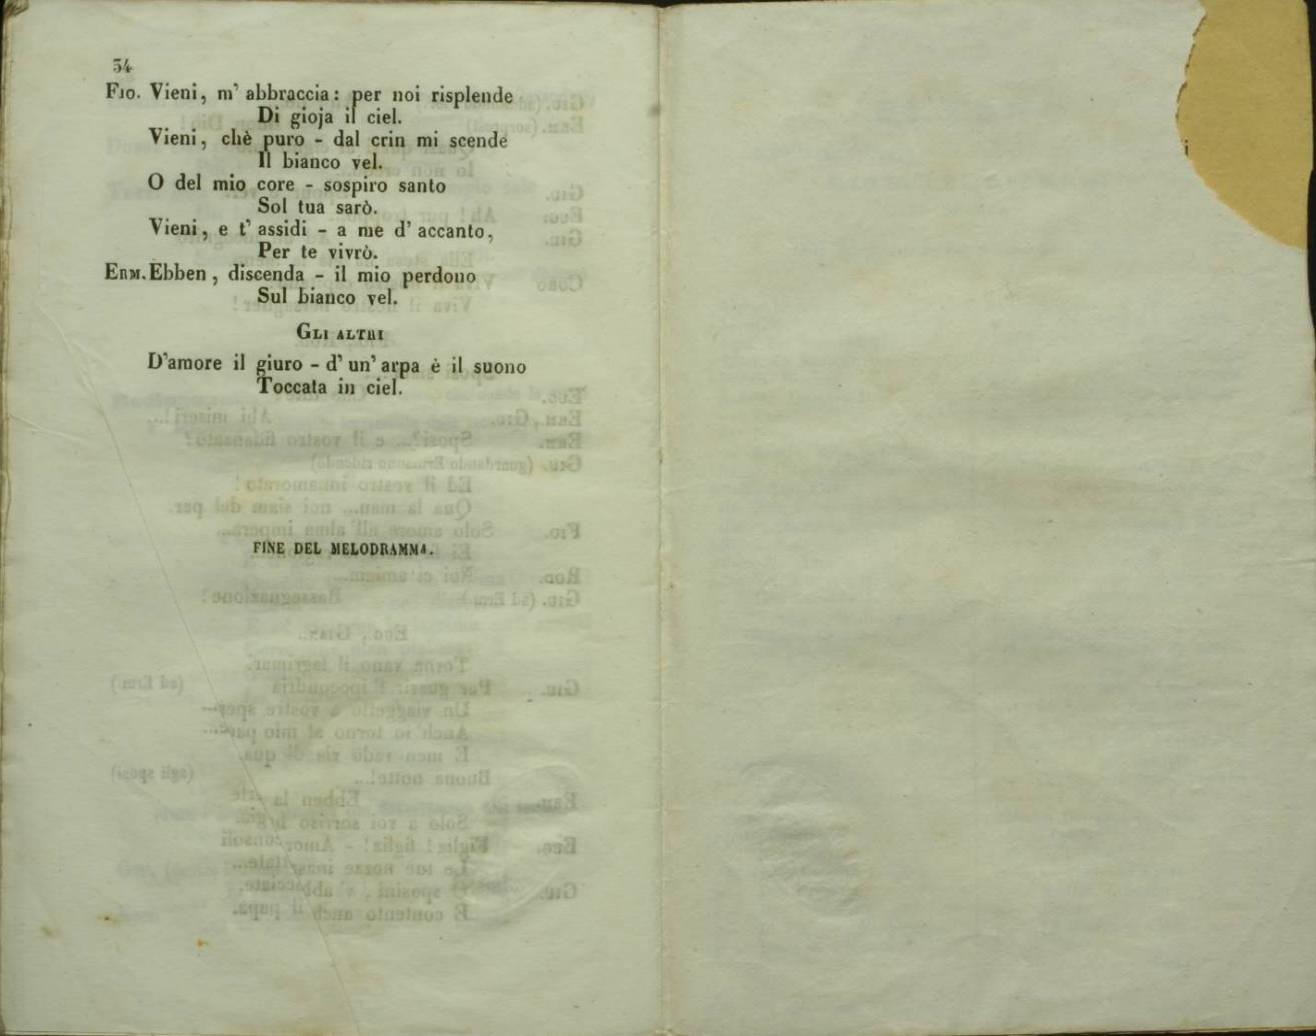 34
Fio. Vieni, m' abbraccia: per noi risplende
Di gioja il ciel.
Vieni, chè puro - dal crin mi scende
Il bianco vel.
O del mio core - sospiro santo
Sol tua sarò.
Vieni, e t' assidi - a me d' accanto,
Per te vivrò.
Erm. Ebben, discenda - il mio perdono
Sul bianco vel.
Gli altri
D'amore il giuro - d' un' arpa è il suono
Toccata in ciel.
FINE DEL MELODRAMMA.